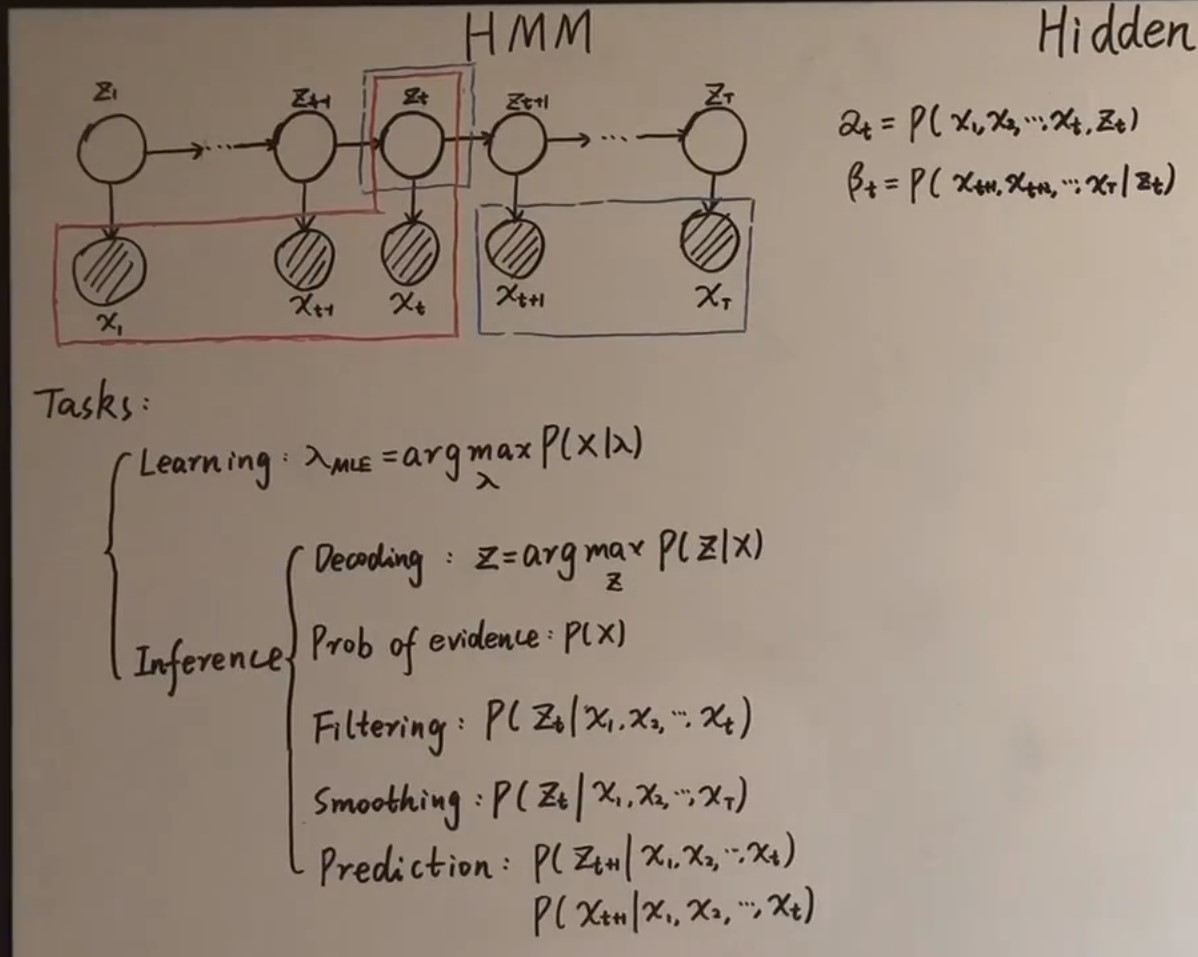 HMM Hidden
z₁ zₜ₋₁ zₜ zₜ₊₁ z_T
... ...
x₁ xₜ₋₁ xₜ xₜ₊₁ x_T
αₜ = P( x₁, x₂, ..., xₜ, zₜ)
βₜ = P( xₜ₊₁, xₜ₊₂, ..., x_T | zₜ)
Tasks:
Learning: λ_MLE = arg max_λ P(X|λ)
Decoding : Z = arg max_Z P(Z|X)
Inference
Prob of evidence: P(X)
Filtering : P( zₜ | x₁, x₂, ..., xₜ)
Smoothing : P( zₜ | x₁, x₂, ..., x_T)
Prediction : P( zₜ₊₁ | x₁, x₂, ..., xₜ)
P( xₜ₊₁ | x₁, x₂, ..., xₜ)